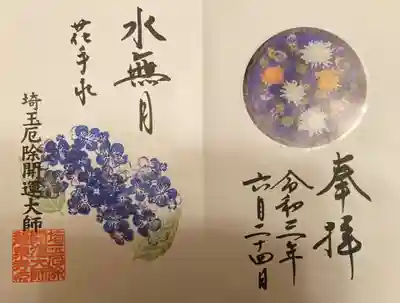 奉拝
令和三年
六月二十四日
水無月
花手水
埼玉厄除開運大師